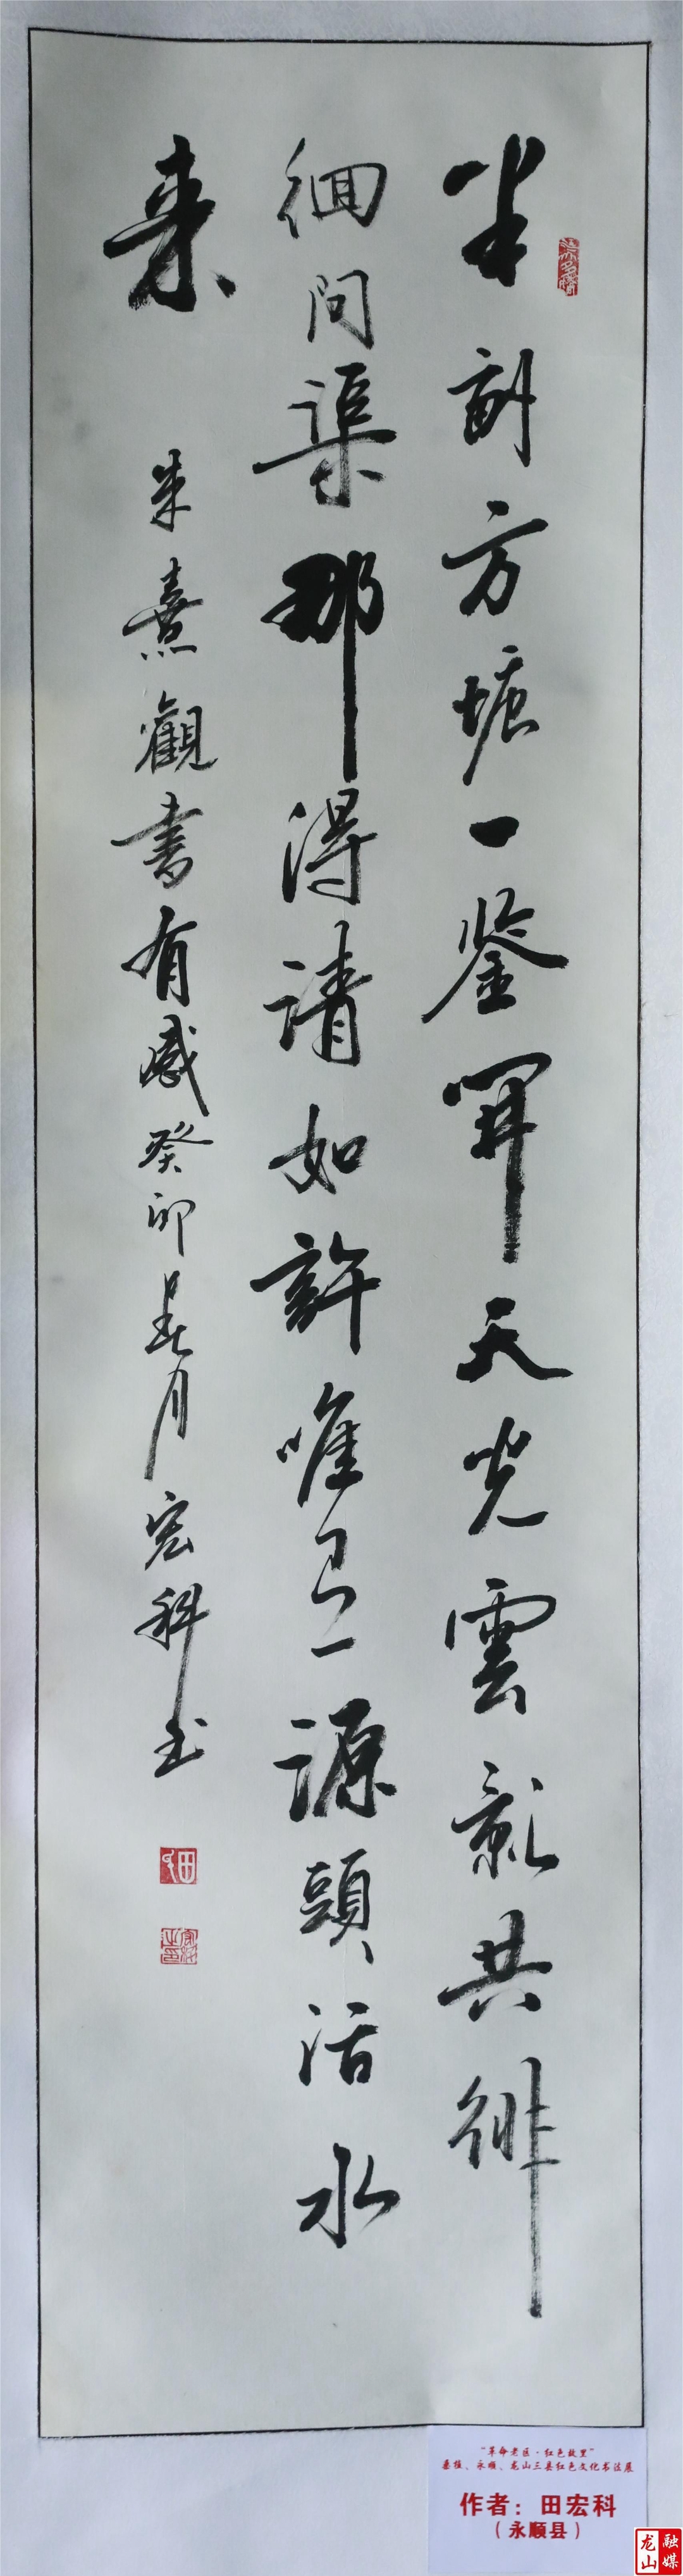 半畝方塘一鉴開天光雲影共徘
徊問渠那得清如許唯有源頭活水
来
朱熹觀書有感癸卯春月宏科书
“革命老区·红色故里”
桑植、永顺、龙山三县红色文化书法展
作者：田宏科
（永顺县）
龙山融媒